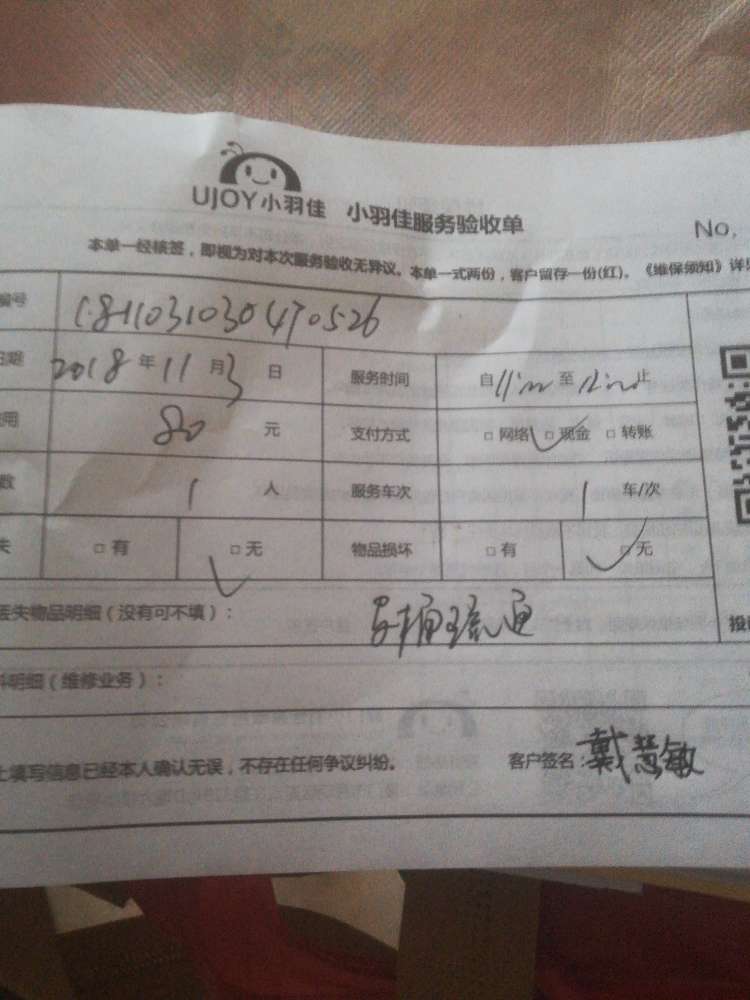 UJOY小羽佳 小羽佳服务验收单
No.
本单一经核签，即视为对本次服务验收无异议。本单一式两份，客户留存一份(红)。《维保须知》详见
编号 1811031030470526
日期 2018年11月3日 服务时间 自11:00至12:00止
用 80元 支付方式 □网络 □现金 □转账
数 1人 服务车次 1车/次
失 □有 □无 物品损坏 □有 □无
丢失物品明细（没有可不填）： 马桶疏通
料明细（维修业务）：
上填写信息已经本人确认无误，不存在任何争议纠纷。 客户签名：戴慧敏